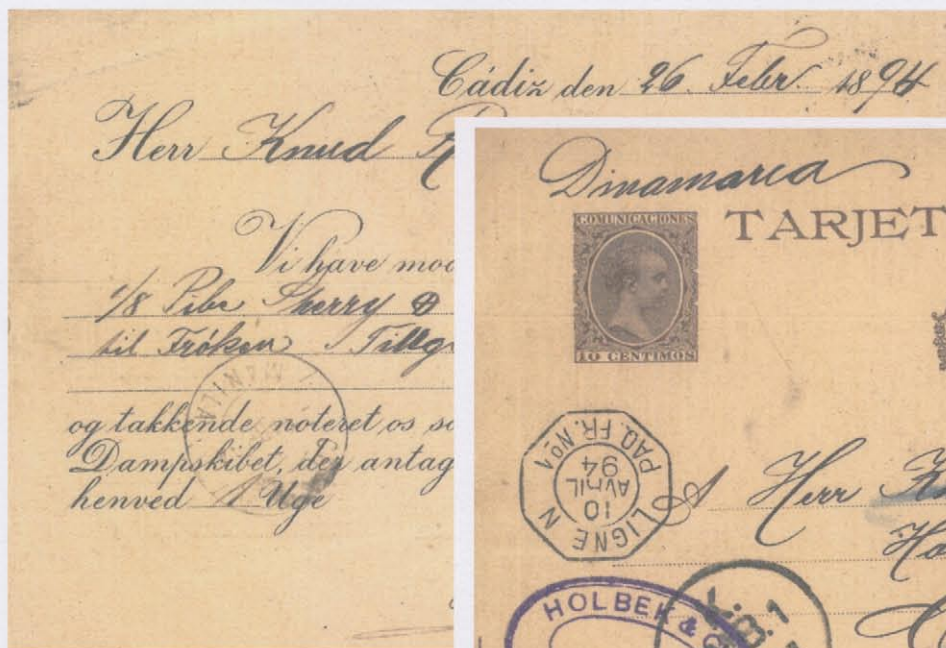 Cádiz den 26. Febr. 1894
Herr Knud
Vi have mod
1/8 Pibe Sherry
til Fröken Tillg
og takkende noteret os so
Dampskibet, der antag
henved 1 Uge
MANILA
Dinamarca
TARJET
COMUNICACIONES
10 CENTIMOS
LIGNE N PAQ. FR. No. 1
10
AVRIL
94
A Herr K
Ha
HOLBEK &